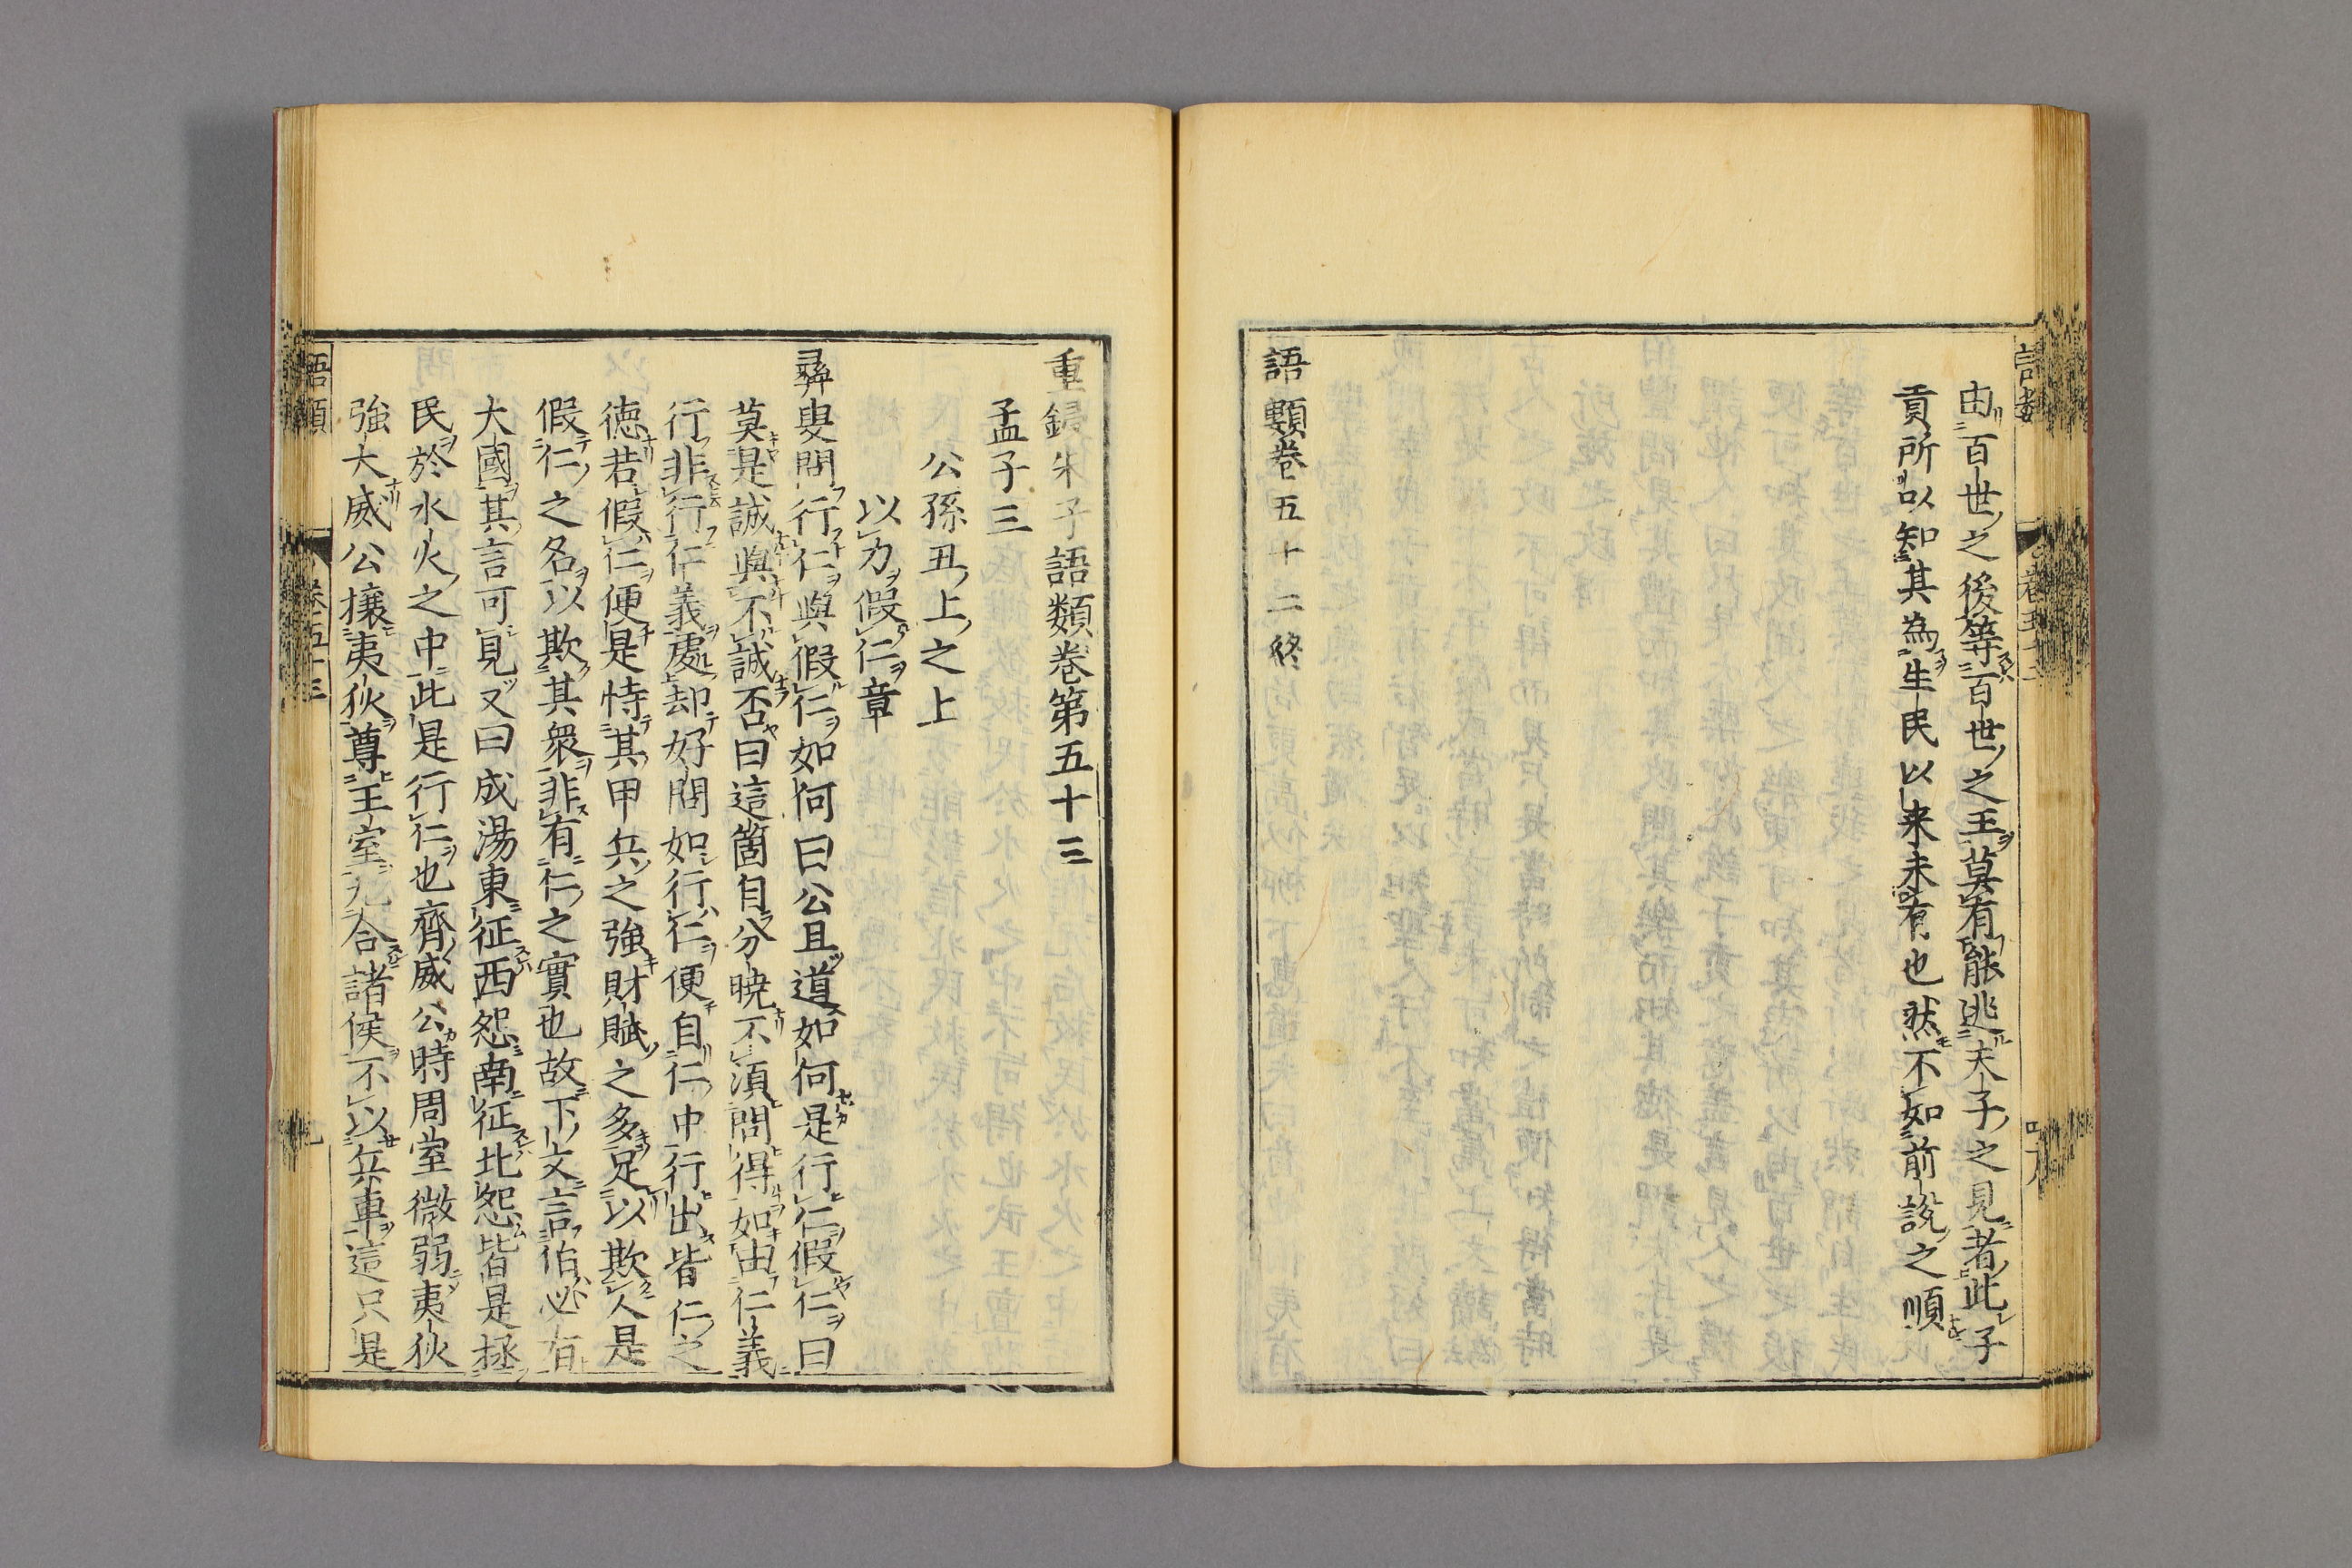 由百世之後等百世之王莫有能逃夫子之見者此子
貢所以知其為生民以来未有也然不如前說之順
語類卷五十二終
重鋟朱子語類卷第五十三
孟子三
公孫丑上之上
以力假仁章
彛叟問行仁與假仁如何曰公且道如何是行仁假仁曰
莫是誠與不誠否曰這箇自分曉不須問得如由仁義
行非行仁義處却好問如行仁便自仁中行出皆仁之
德若假仁便是恃其甲兵之強財賦之多足以欺人是
假仁之名以欺其衆非有仁之實也故下文言伯必有
大國其言可見又曰成湯東征西怨南征北怨皆是拯
民於水火之中此是行仁也齊威公時周室微弱夷狄
強大威公攘夷狄尊王室九合諸侯不以兵車這只是
語類
卷五十三